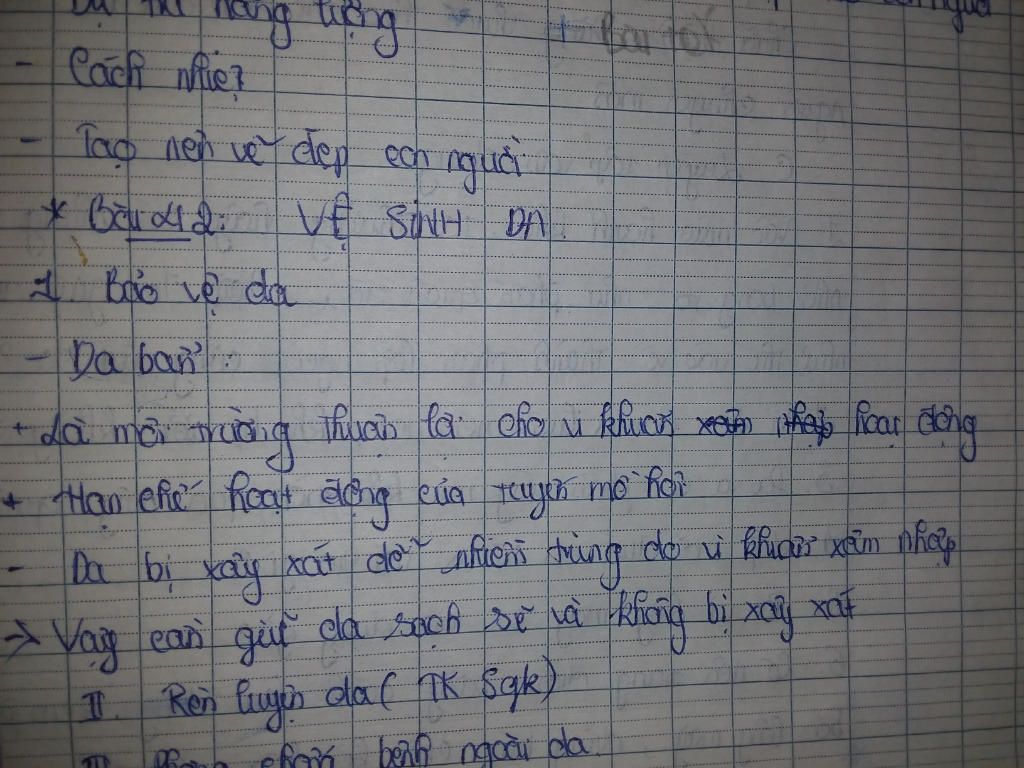 năng lượng
- Cách nhiệt
- Tạo nên vẻ đẹp con người
* Bài 42: VỆ SINH DA
I Bảo vệ da
- Da bẩn:
+ Là môi trường thuận lợi cho vi khuẩn xâm nhập hoạt động
+ Hạn chế hoạt động của tuyến mồ hôi
- Da bị xây xát dễ nhiễm trùng do vi khuẩn xâm nhập
→ Vậy cần giữ da sạch sẽ và không bị xây xát
II. Rèn luyện da (TK Sgk)
III Phòng chống bệnh ngoài da